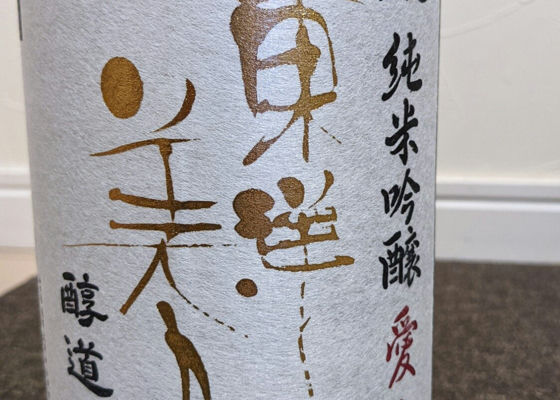 純米吟醸 愛
東洋
美人
醇道